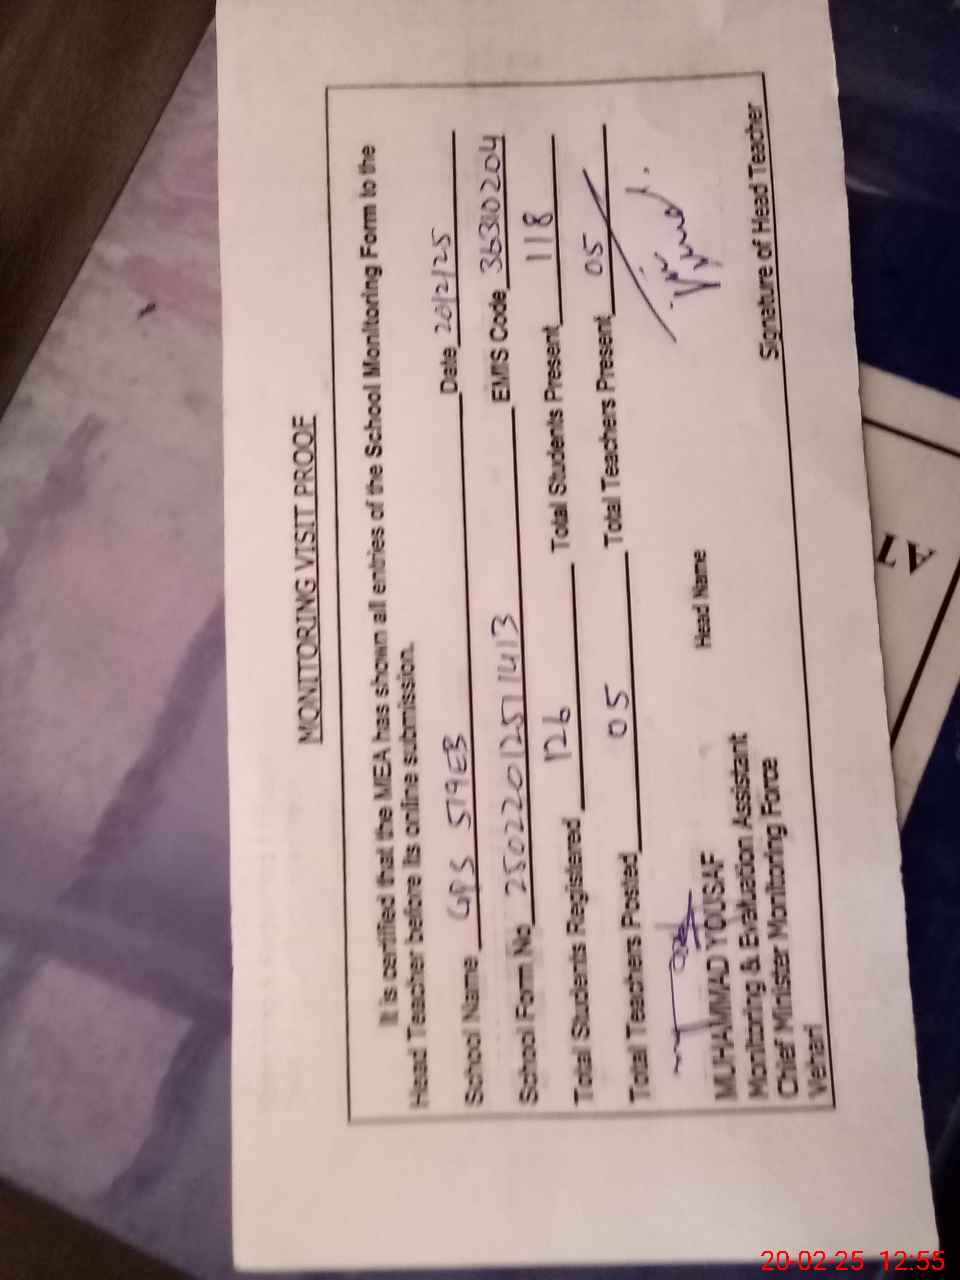 MONITORING VISIT PROOF
It is certified that the MEA has shown all entries of the School Monitoring Form to the
Head Teacher before its online submission.
School Name GPS 519EB Date 20/2/25
School Form No 25022201251 1413 EMIS Code 36310204
Total Students Registered 126 Total Students Present 118
Total Teachers Posted 05 Total Teachers Present 05
MUHAMMAD YOUSAF Head Name
Monitoring & Evaluation Assistant
Chief Minister Monitoring Force
Vehari
Signature of Head Teacher
AT
20-02-25 12:55